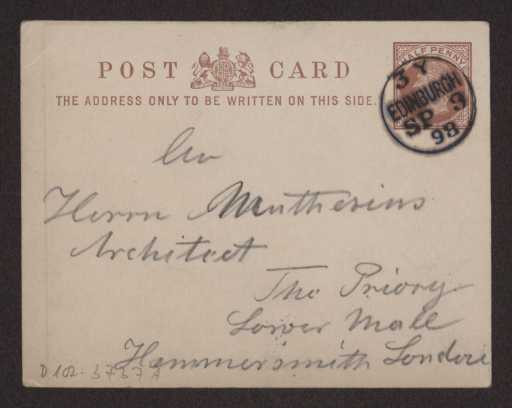 POST CARD
THE ADDRESS ONLY TO BE WRITTEN ON THIS SIDE.
HALF PENNY
3 Y
EDINBURGH
SP 9
98
An
Herrn Muthesius
Architect
The Priory
Lower Mall
Hammersmith London
D 102-3737 A